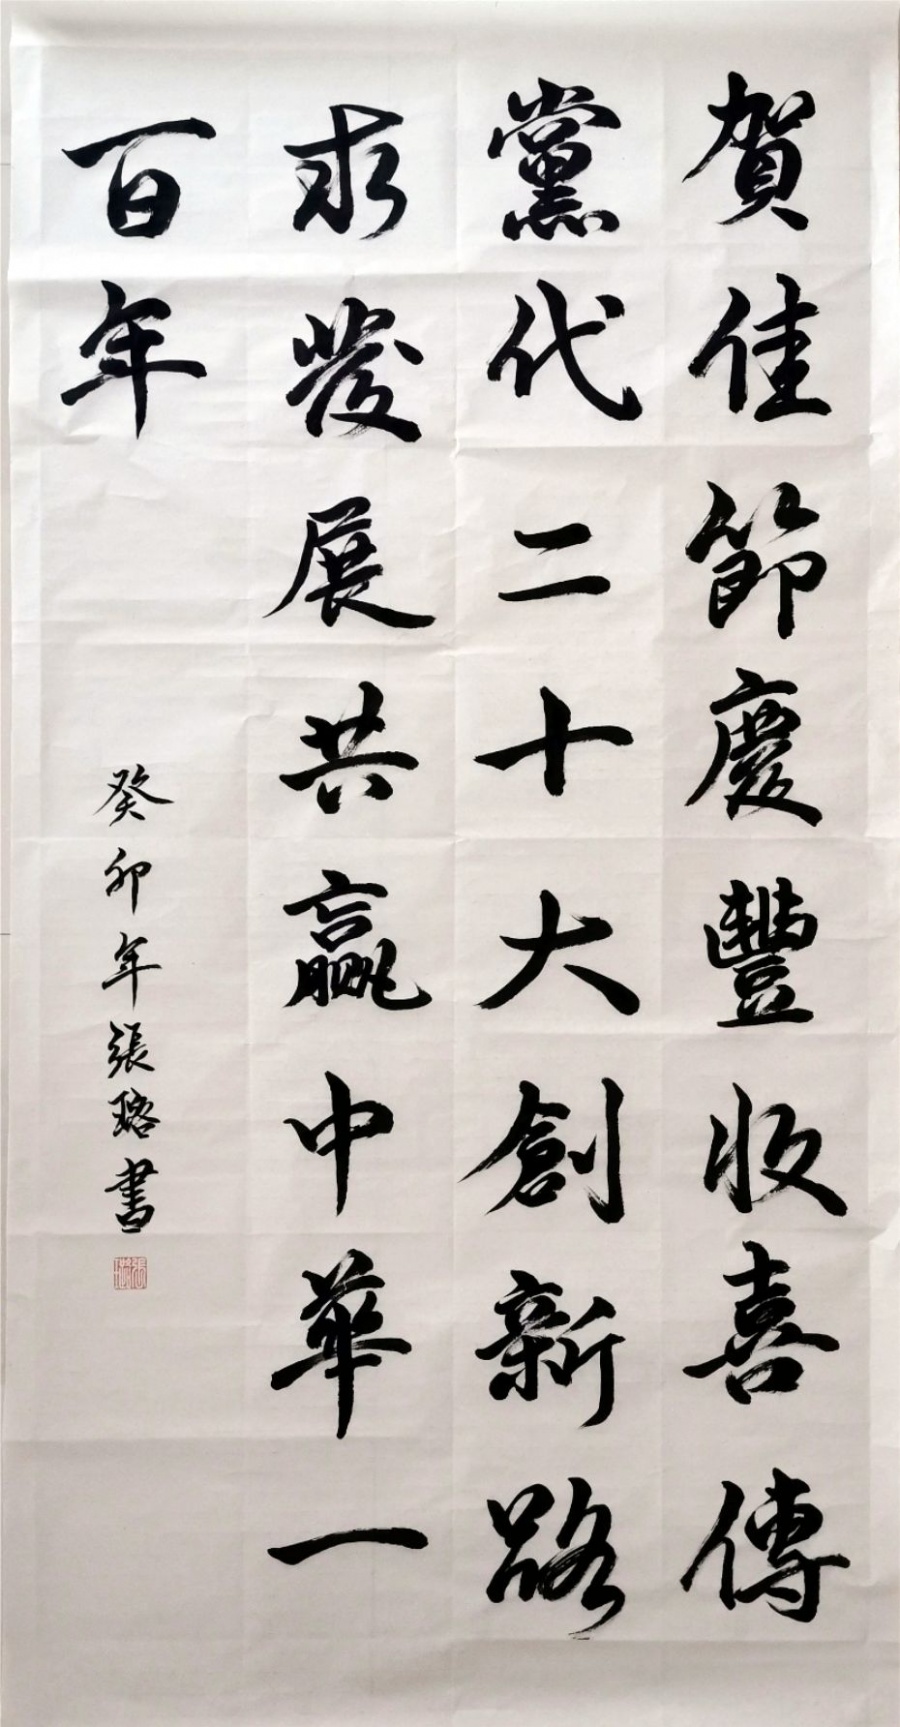 賀佳節慶豐收喜傳
黨代二十大創新路
求發展共贏中華一
百年
癸卯年張珞書